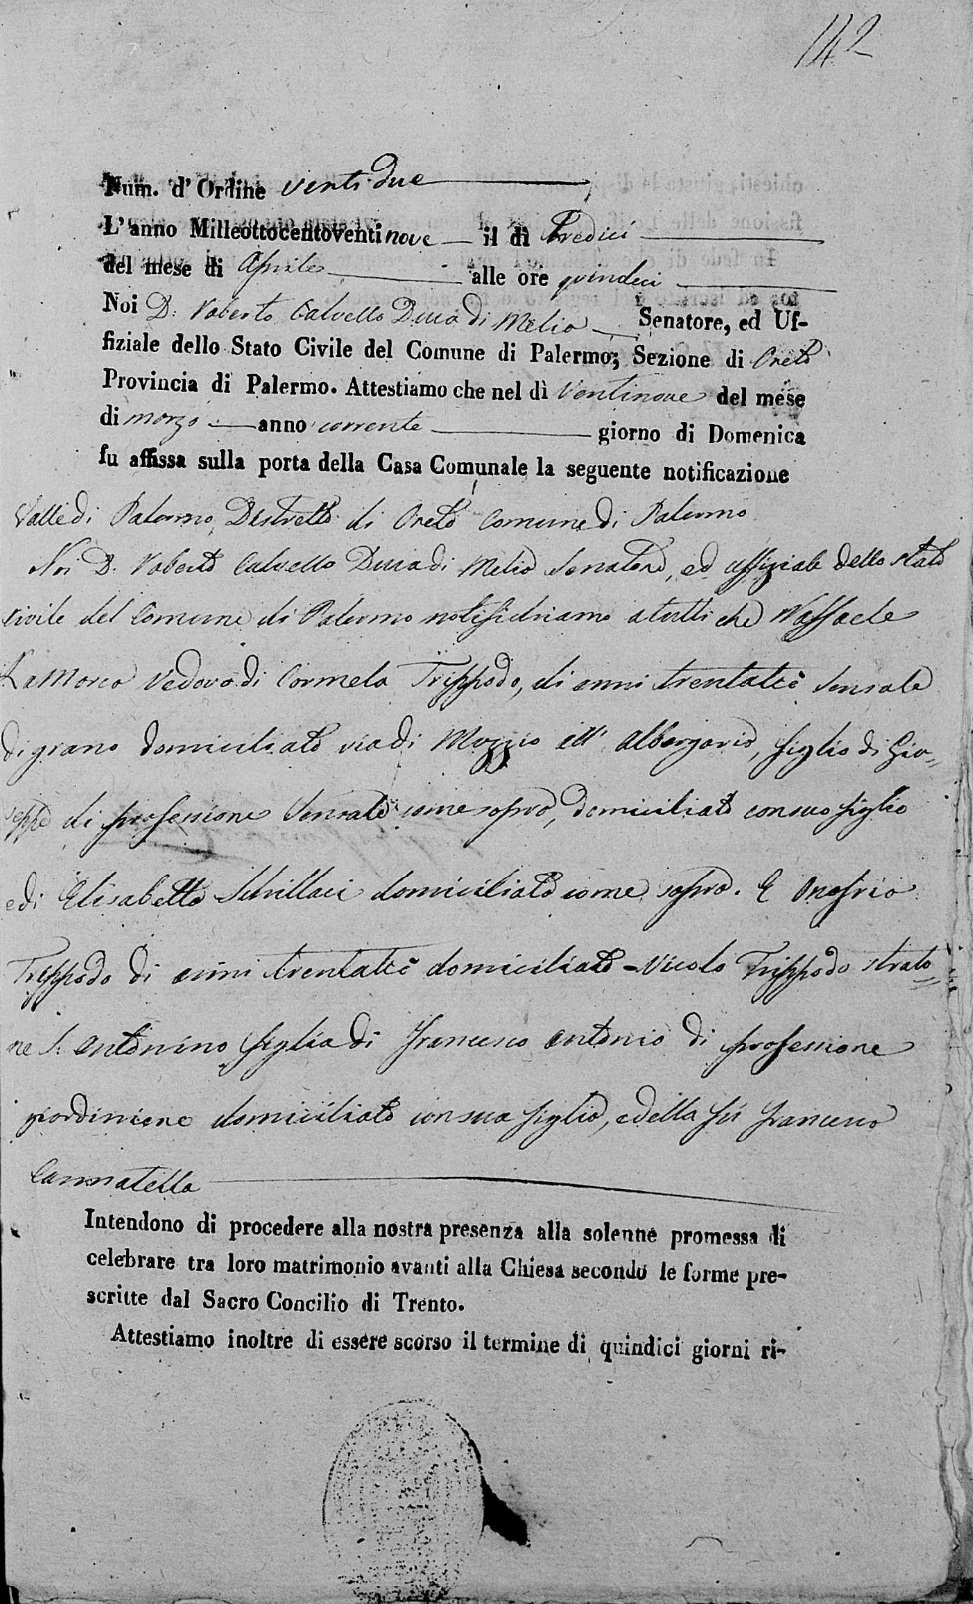 142
Num. d'Ordine ventidue
L'anno Milleottocentoventi nove il dì Tredici
del mese di Aprile alle ore quindeci
Noi D. Roberto Calvello Duca di Melia Senatore, ed Uf-
fiziale dello Stato Civile del Comune di Palermo; Sezione di Oreto
Provincia di Palermo. Attestiamo che nel dì Ventinove del mese
di marzo anno corrente giorno di Domenica
fu affissa sulla porta della Casa Comunale la seguente notificazione
Valle di Palermo Distretto di Oreto Comune di Palermo
Noi D. Roberto Calvello Duca di Melia Senatore, ed uffiziale dello stato
civile del Comune di Palermo notifichiamo a tutti che Raffaele
La Marca Vedovo di Carmela Trippodo, di anni trentatre sensale
di grano domiciliato via di all' Albergaria, figlio di Gio=
seppe di professione sensale come sopra, domiciliato con suo figlio
e di Elisabetta Schillaci domiciliata come sopra. E Onofria
Trippodo di anni trentatre domiciliata Vicolo Trippodo strato=
ne S. Antonino figlia di Francesco Antonio di professione
giardiniere domiciliato con sua figlia, e della fu Francesca
Cannatella
Intendono di procedere alla nostra presenza alla solenne promessa di
celebrare tra loro matrimonio avanti alla Chiesa secondo le forme pre-
scritte dal Sacro Concilio di Trento.
Attestiamo inoltre di essere scorso il termine di quindici giorni ri-